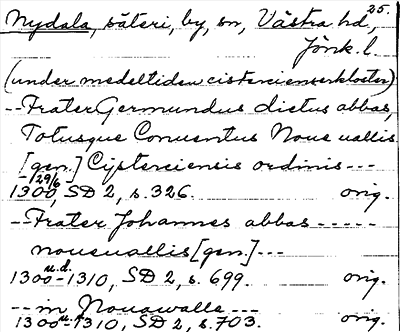 25.
Nydala, säteri, by, sn, Västra hd,
Jönk. l.
(under medeltiden cistercienserkloster)
--Frater Germundus dictus abbas,
Totusque Conuentus Noue uallis
[gen.] Cysterciensis ordinis ---
1300 29/6, SD 2, s. 326. orig.
--Frater Johannes abbas -----
noueuallis [gen.] ---
1300-1310, u.d. SD 2, s. 699. orig.
--in Nouawalle ---
1300-1310, u.d. SD 2, s. 703. orig.